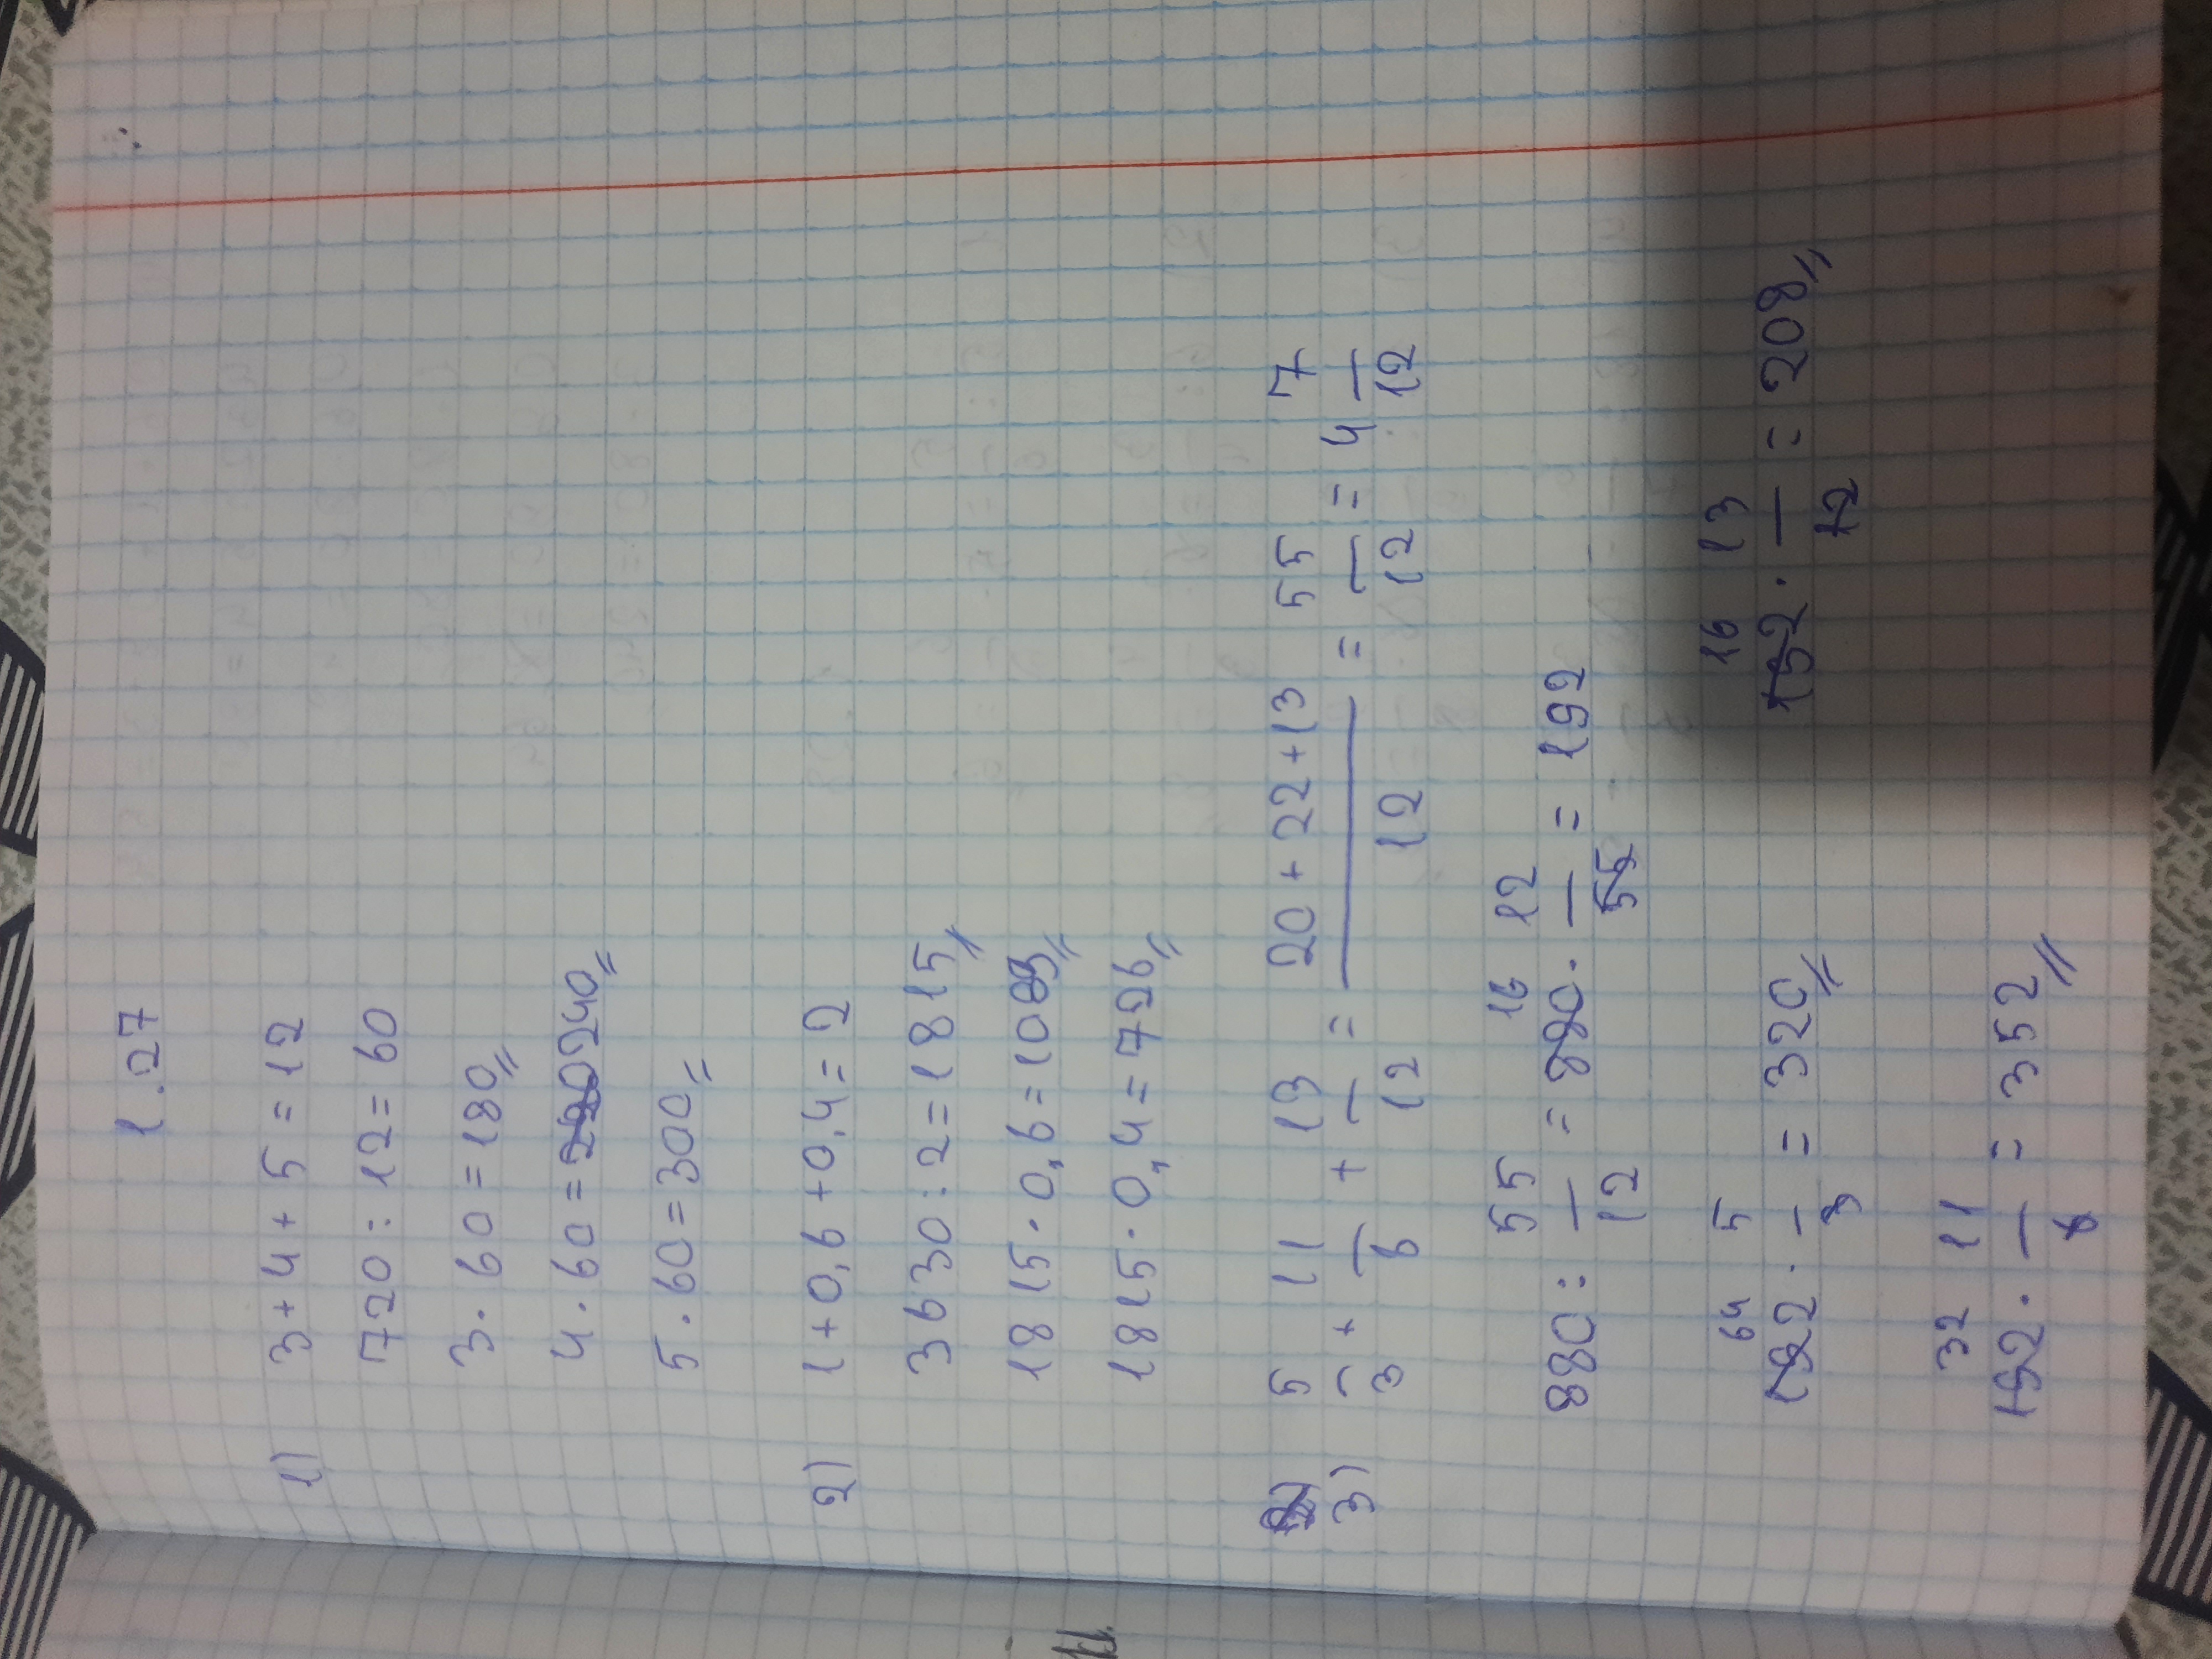 1.27
1) 3+4+5=12
720:12=60
3·60=180
4·60=220 240
5·60=300
2) 1+0,6+0,4=2
3630:2=1815
1815·0,6=1089
1815·0,4=726
3) 5/3 + 11/6 + 13/12 = (20+22+13)/12 = 55/12 = 4 7/12
880 : 55/12 = 880 · 12/55 = 192
16
192 · 5/3 = 320
64
192 · 13/12 = 208
16
192 · 11/6 = 352
32